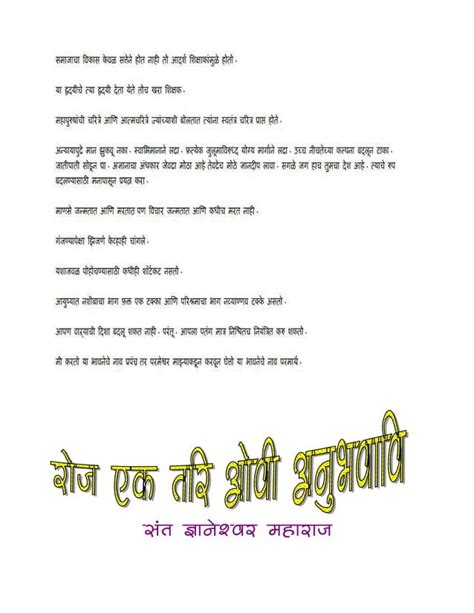 समाजाचा विकास केवळ सत्तेने होत नाही तो आदर्श शिक्षकांमुळे होतो .
या हृदयीचे त्या हृदयी देता येते तोच खरा शिक्षक .
महापुरुषांची चरित्रे आणि आत्मचरित्रे ज्यांच्याशी बोलतात त्यांना स्वतंत्र चरित्र प्राप्त होते .
अन्यायापुढे मान झुकवू नका . स्वाभिमानाने लढा . प्रत्येक जुलूमाविरुध्द योग्य मार्गाने लढा . उच्च नीचतेच्या कल्पना बदलून टाका .
जातीपाती सोडून द्या . अज्ञानाचा अंधकार जेवढा मोठा आहे तेवढेच मोठे ज्ञानदीप लावा . सगळे जग हाच तुमचा देश आहे . त्याचे रुप
बदलण्यासाठी मनापासून प्रयत्न करा .
माणसे जन्मतात आणि मरतात पण विचार जन्मतात आणि कधीच मरत नाही .
गंजण्यापेक्षा झिजणे केव्हाही चांगले .
यशाजवळ पोहोचण्यासाठी कधीही शॉर्टकट नसतो .
आयुष्यात नशीबाचा भाग फ़क्त एक टक्का आणि परिश्रमाचा भाग नव्याण्णव टक्के असतो .
आपण वाऱ्याची दिशा बदलू शकत नाही . परंतू , आपला पतंग मात्र निश्चितच नियंत्रित करु शकतो .
मी करतो या भावनेचे नाव प्रपंच तर परमेश्वर माझ्याकडून करवून घेतो या भावनेचे नाव परमार्थ .
रोज एक तरि ओवी अनुभवावि
संत ज्ञानेश्वर महाराज